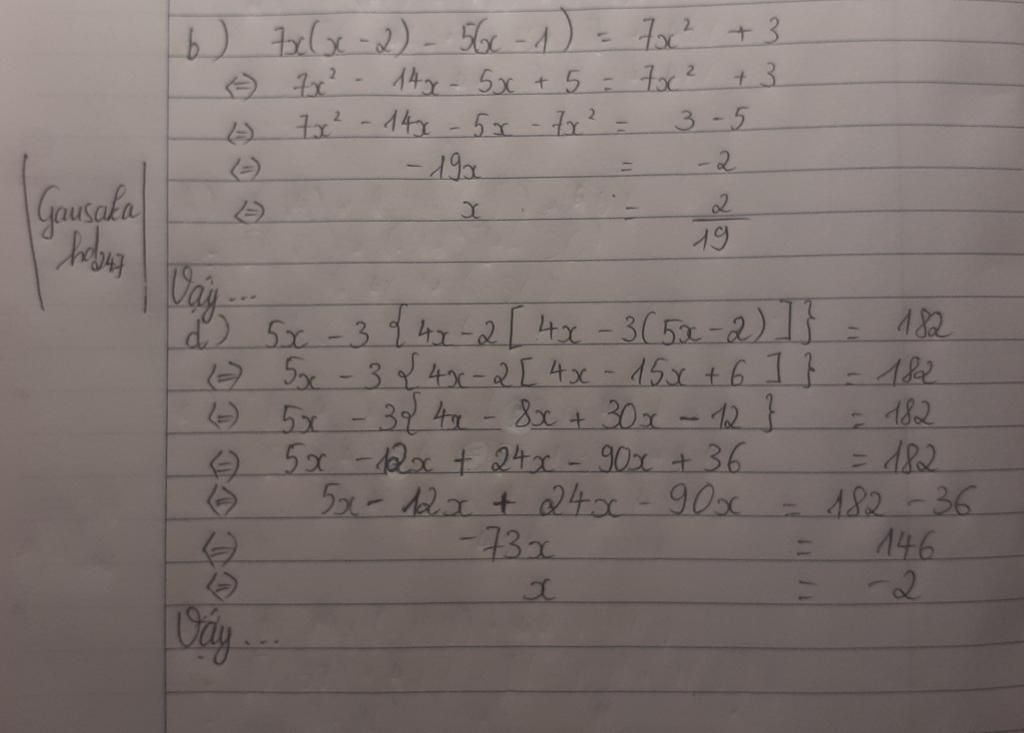 b) 7x(x - 2) - 5(x - 1) = 7x² + 3
⇔ 7x² - 14x - 5x + 5 = 7x² + 3
⇔ 7x² - 14x - 5x - 7x² = 3 - 5
⇔ -19x = -2
⇔ x = 2/19
Gausaka
hd247
Vậy...
d) 5x - 3{4x - 2[4x - 3(5x - 2)]} = 182
⇔ 5x - 3{4x - 2[4x - 15x + 6]} = 182
⇔ 5x - 3{4x - 8x + 30x - 12} = 182
⇔ 5x - 12x + 24x - 90x + 36 = 182
⇔ 5x - 12x + 24x - 90x = 182 - 36
⇔ -73x = 146
⇔ x = -2
Vậy...